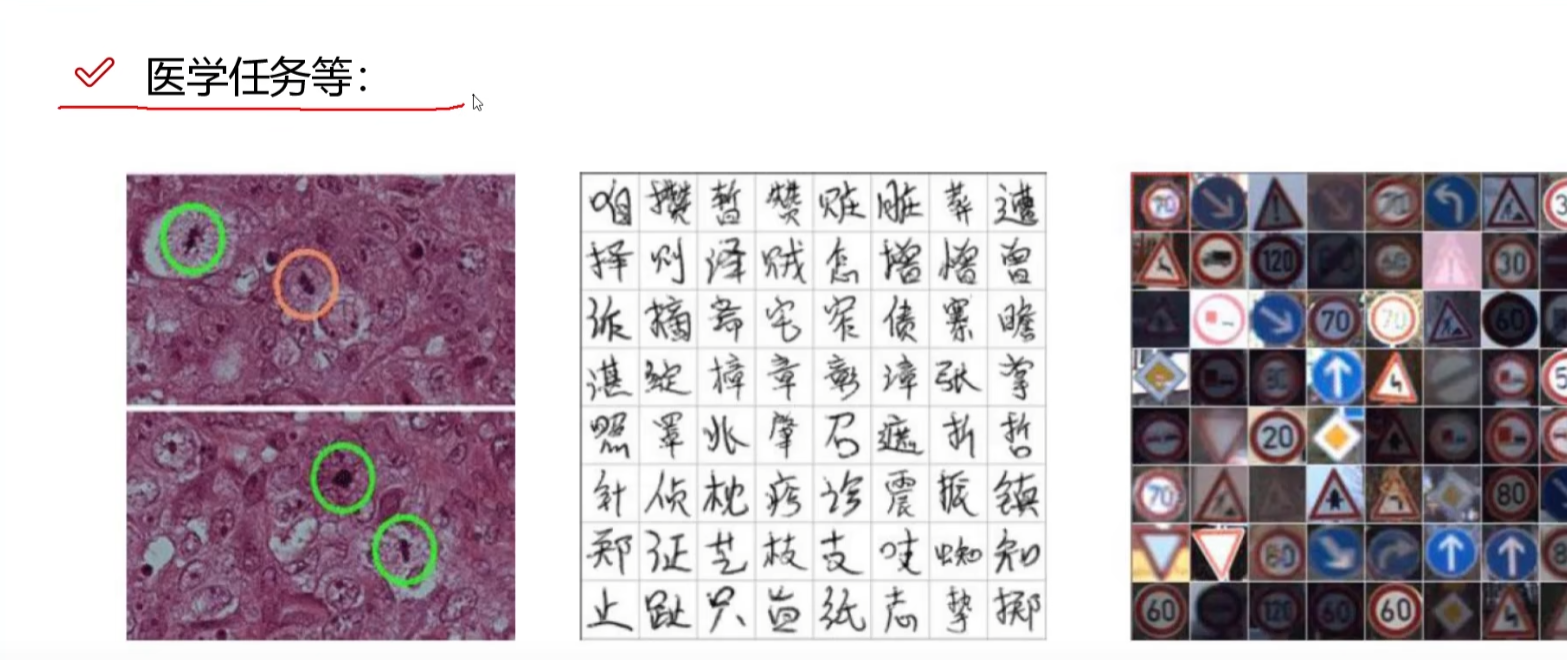 医学任务等：
咱 攒 暂 赞 赃 脏 葬 遭
择 则 泽 贼 怎 增 憎 曾
诈 摘 斋 宅 窄 债 寨 瞻
湛 绽 樟 章 彰 漳 张 掌
照 罩 兆 肇 召 遮 折 哲
针 侦 枕 疹 诊 震 振 镇
郑 证 芝 枝 支 吱 蜘 知
止 趾 只 旨 纸 志 挚 掷
70 70 3
120 60 30
70 70 60
80 5
20
70 80
80
60 120 60 60